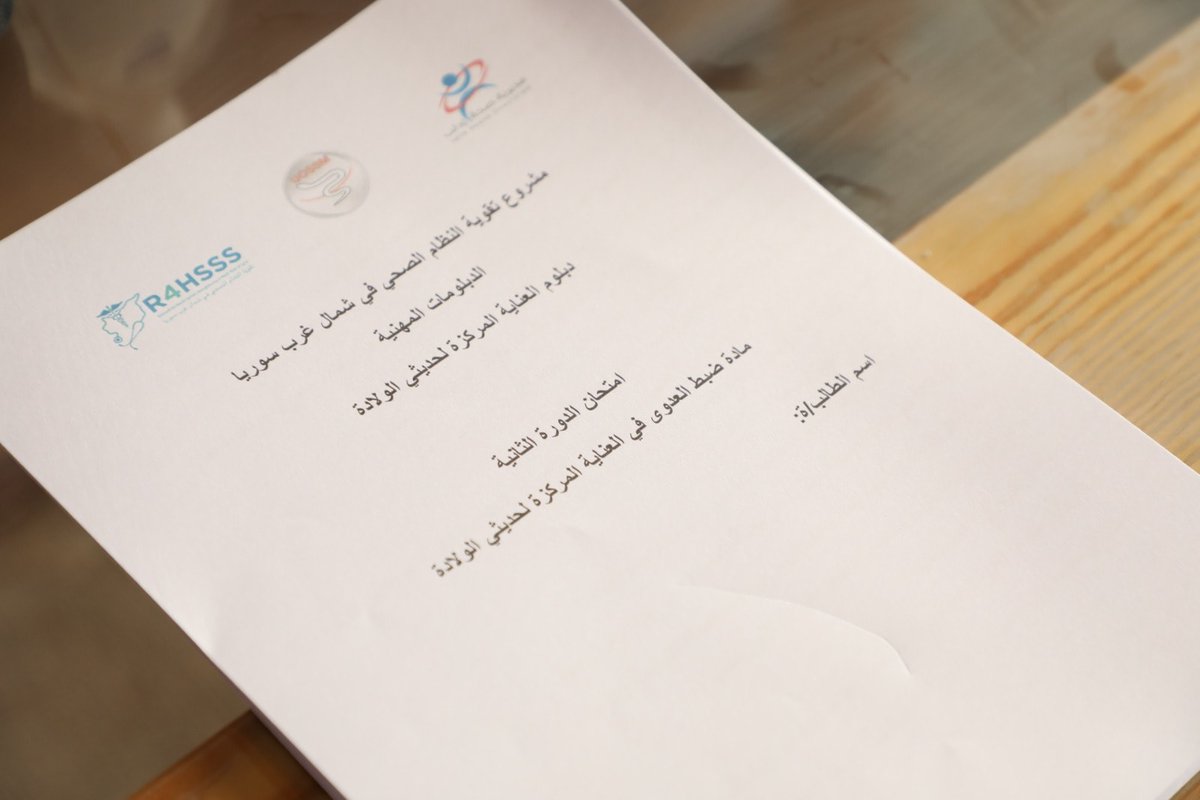 مديرية صحة إدلب
UOSSM
R4HSSS
مشروع تقوية النظام الصحي في شمال غرب سوريا
الدبلومات المهنية
دبلوم العناية المركزة لحديثي الولادة
امتحان الدورة الثانية
مادة ضبط العدوى في العناية المركزة لحديثي الولادة
اسم الطالب/ة: